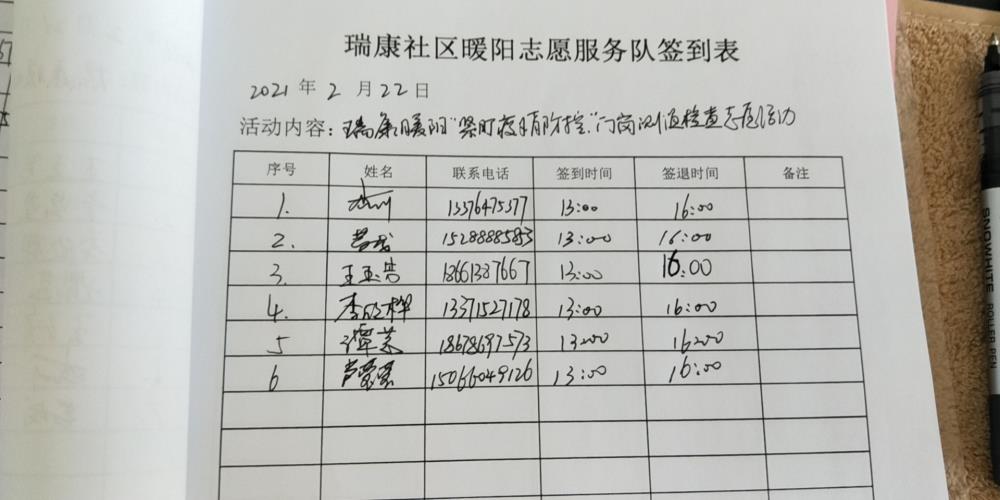 瑞康社区暖阳志愿服务队签到表
2021年 2 月 22 日
活动内容：瑞康暖阳"紧盯疫情防控"门岗测温检查志愿活动
序号 姓名 联系电话 签到时间 签退时间 备注
1. 13376475377 13:00 16:00
2. 1528888583 13:00 16:00
3. 王玉浩 18661387667 13:00 16:00
4. 李欣桦 13371527178 13:00 16:00
5 谭英 18678697573 13:00 16:00
6 15066049126 13:00 16:00
SNOWHITE ROLLER PEN